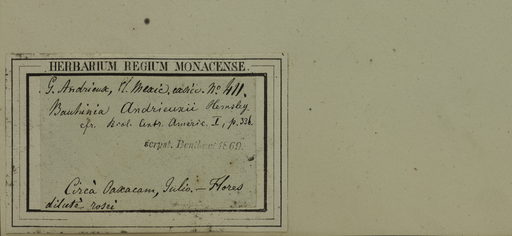 HERBARIUM REGIUM MONACENSE.
G. Andrieux, Pl. Mexic. exsicc. No. 411.
Bauhinia Andrieuxii Hemsley
cfr. Biol. Centr. Americ. I, p. 338.
Circà Oaxacam, Julio. — Flores
dilutè rosei